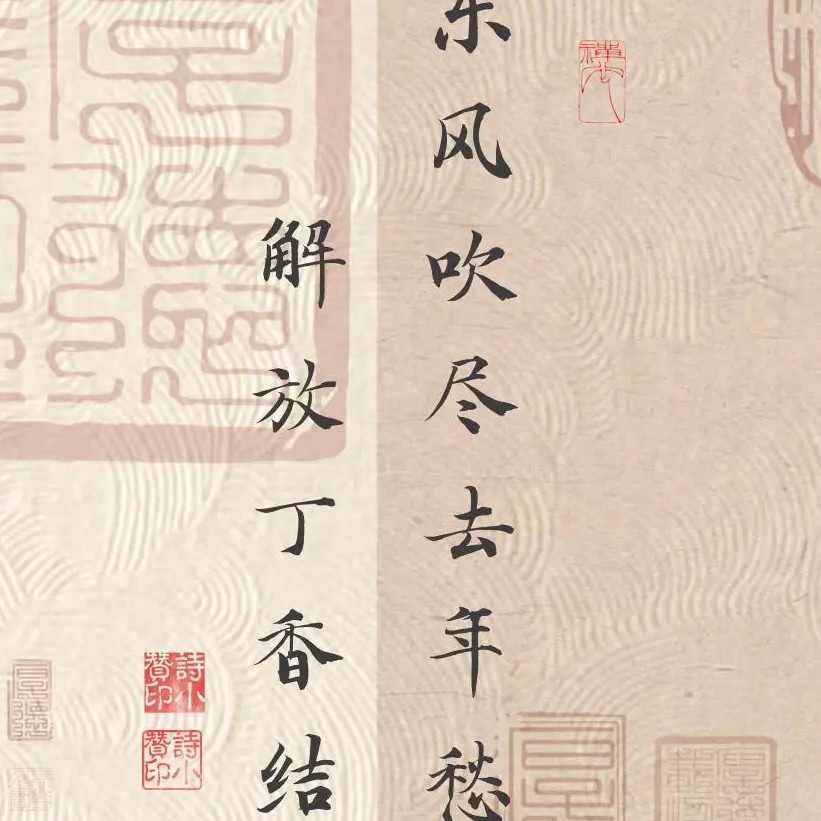 东风吹尽去年愁
解放丁香结
詩小
贊印
詩小
贊印